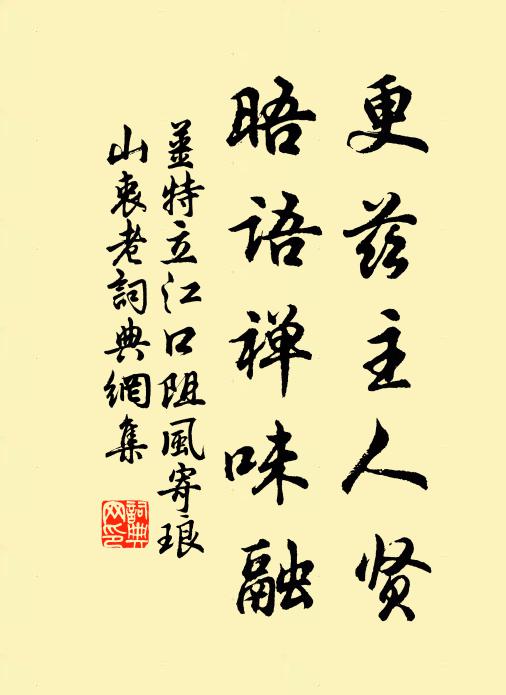 更兹主人贤
晤语禅味融
姜特立江口阻風寄琅
山衷老詞典網集
詞典
网印